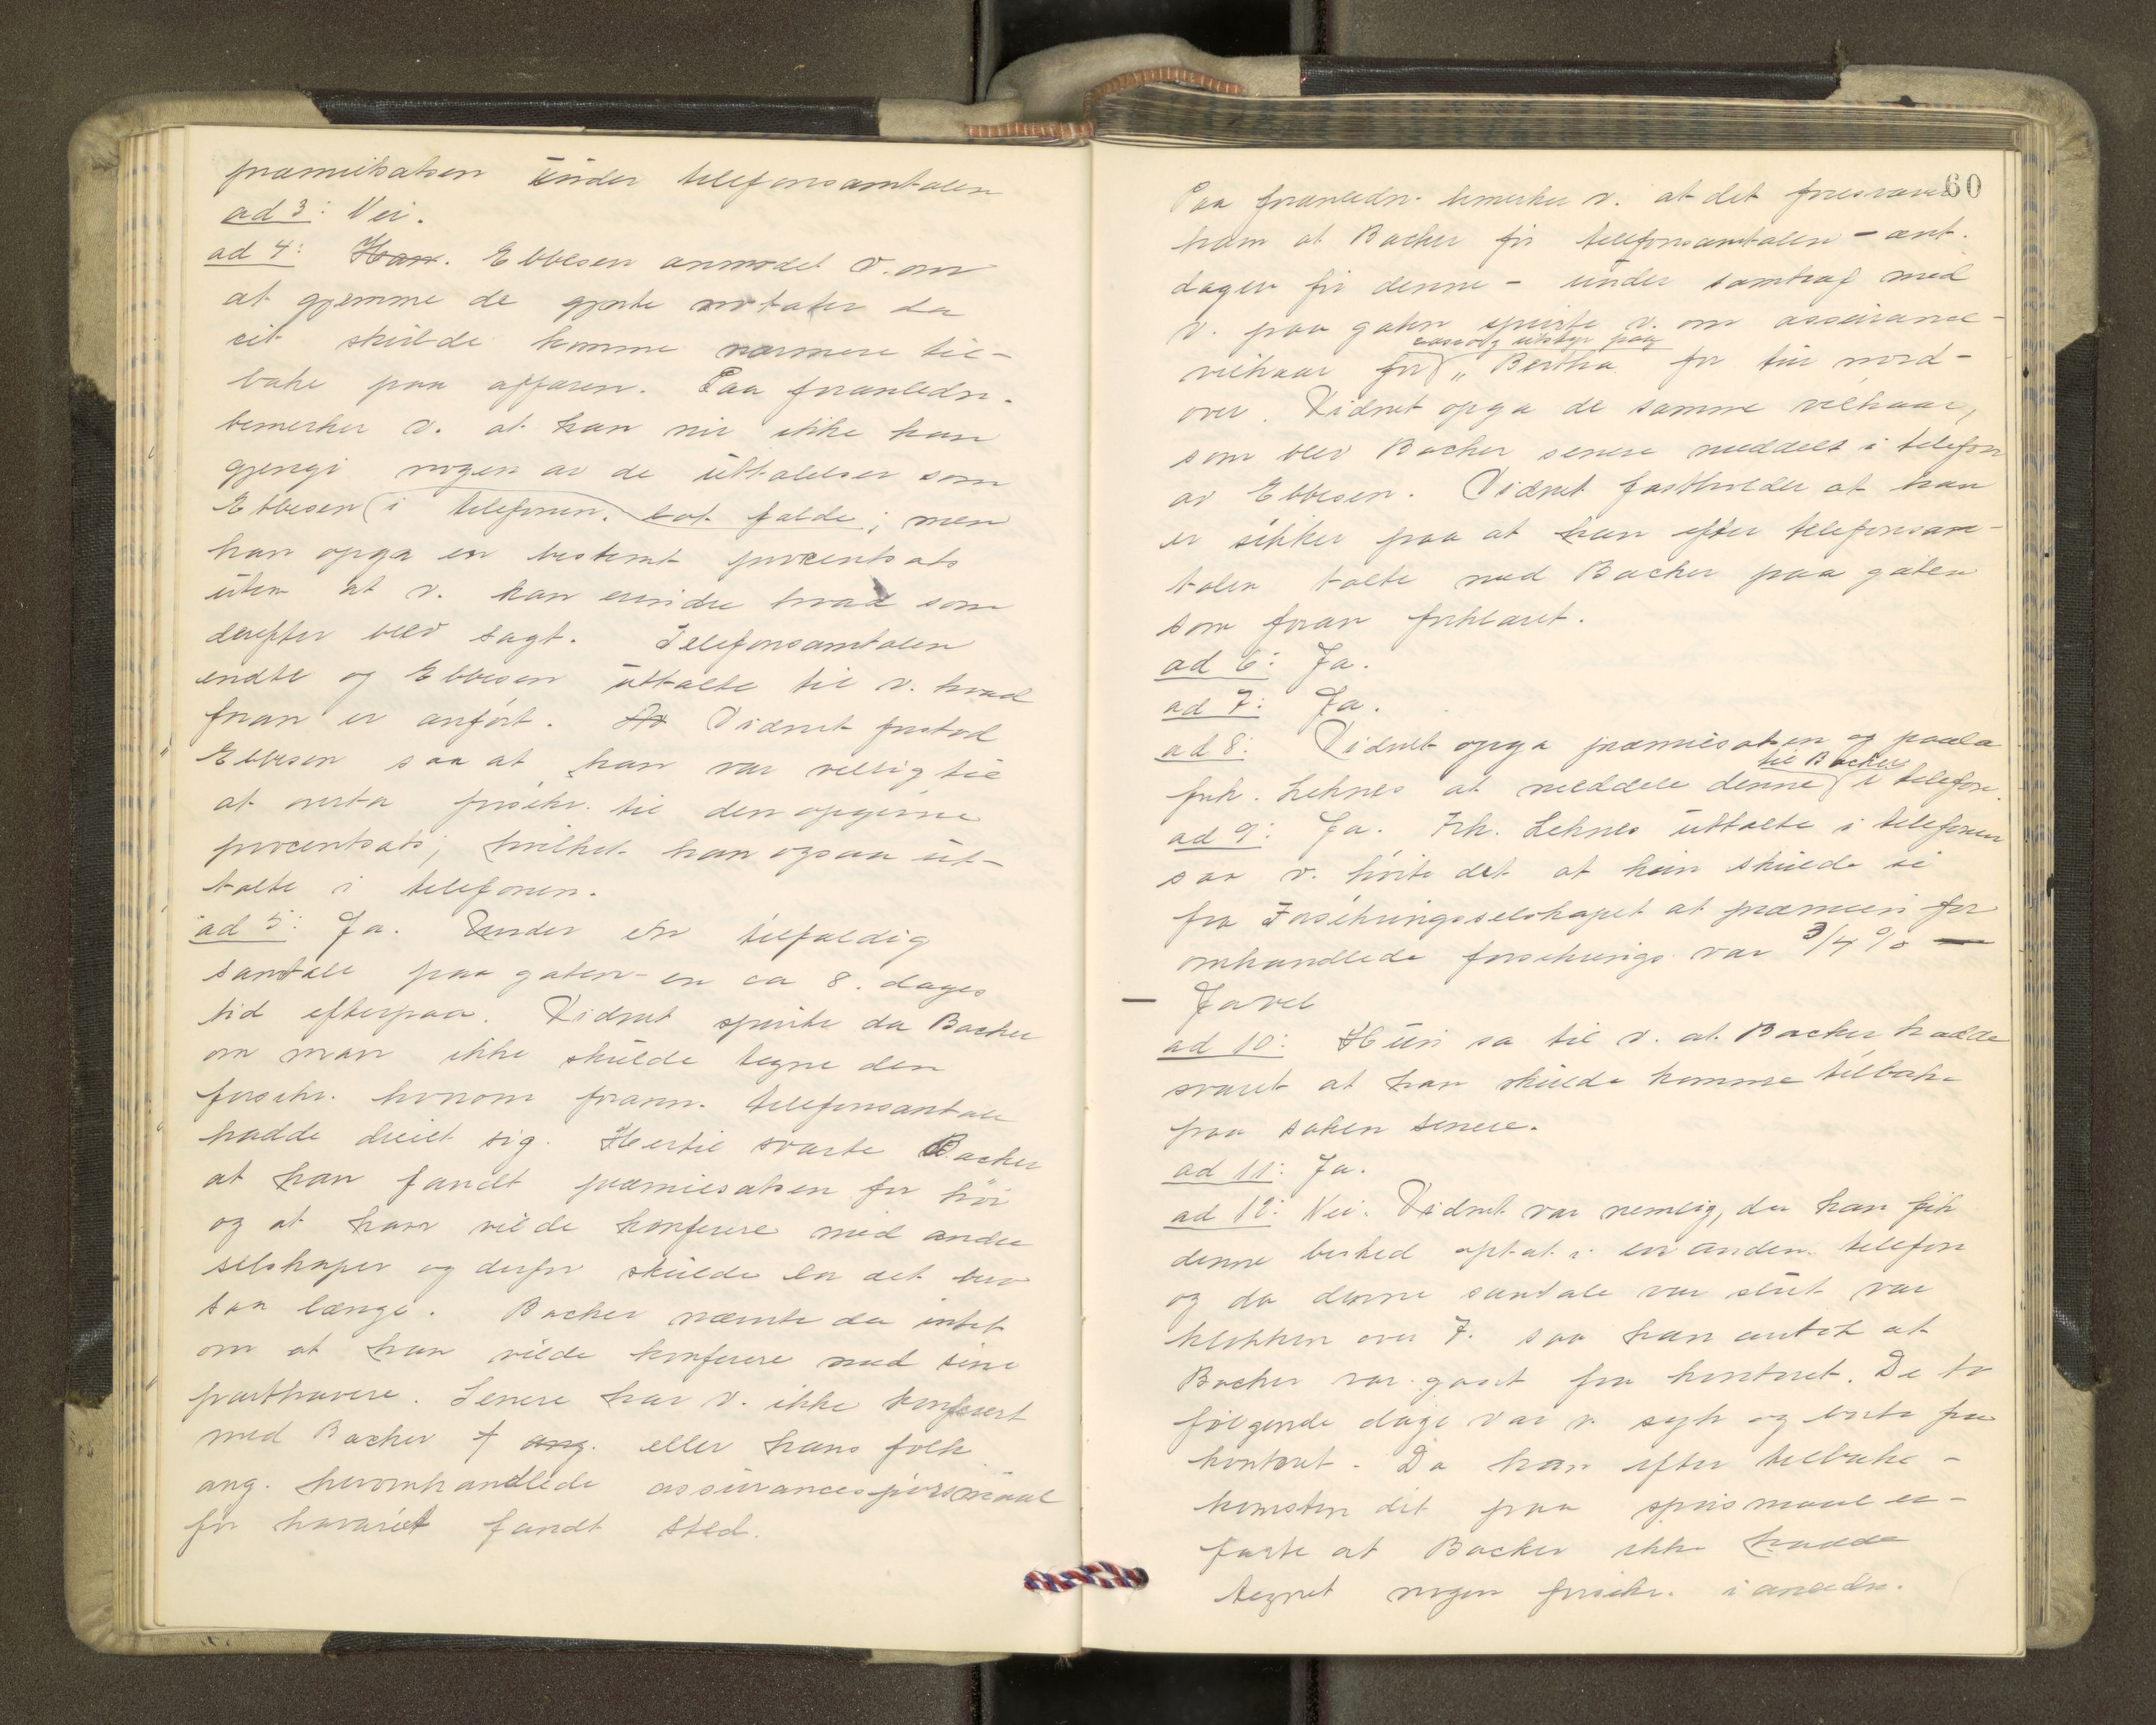 præmiesatsen under telefonsamtalen
ad 3: Nei.
ad 4: Han. Ebbesen anmodet v. om
at gjemme de gjorte notater da
vit skulde komme nærmere til-
bake paa affæren. Paa foranledn.
bemerker v. at han nu ikke kan
gjengi nogen av de uttalelser som
Ebbesen i telefonen. lot falde; men
han opga en bestemt procentsats
uten at v. kan erindre hvad som
derefter blev sagt. Telefonsamtalen
endte og Ebbesen uttalte til v. hvad
foran er anført. Av Vidnet forstod
Ebbesen saa at han var villig til
at overta forsikr. til den opgivne
procentsats; hvilket han ogsaa ut-
talte i telefonen.
ad 5: Ja. Under en tilfældig
samtale paa gaten - en ca 8. dages
tid efterpaa. Vidnet spurte da Backer
om man ikke skulde tegne den
forsikr. hvorom forann. telefonsamtale
hadde dreiet sig. Hertil svarte Backer
at han fandt præmiesatsen for høi
og at han vilde konferere med andre
selskaper og derfor skulde la det bero
saa længe. Backer nævnte da intet
om at han vilde konferere med sine
parthavere. Senere har v. ikke konferert
med Backer f ang. eller hans folk
ang. heromhandlede assurancespørsmaal
før havariet fandt sted.
60
Paa foranledn. bemerker v. at det foresvæver
ham at Backer før telefonsamtalen - ant.
dagen før denne - under samtræf med
v. paa gaten spurte v. om assurance-
vilkaar for "Bertha for tur nord-
over. Vidnet opga de samme vilkaar,
som blev Backer senere meddelt i telefon
av Ebbesen. Vidnet fastholder at han
er sikker paa at han efter telefonsam-
talen talte med Backer paa gaten
som foran forklaret.
ad 6: Ja.
ad 7: Ja.
ad 8: Vidnet opga præmiesatsen og paala
til Backer
frk. Leknes at meddele denne i telefon.
ad 9: Ja. Frk. Leknes uttalte i telefonen
saa v. hørte det at hun skulde si
fra Forsikringsselskapet at præmien for
omhandlede forsikrings. var 3/4 % —
— Javel
ad 10: Hun sa til v. at Backer hadde
svaret at han skulde komme tilbake
paa saken senere.
ad 11: Ja.
ad 12: Nei. Vidnet var nemlig, da han fik
denne besked optat i en anden telefon
og da denne samtale var slut var
klokken over 7. saa han antok at
Backer var gaat fra kontoret. De to
følgende dage var v. syk og borte fra
kontoret. Da han efter tilbake-
komsten dit paa spørsmaal er-
farte at Backer ikke hadde
tegnet nogen forsikr. i anledn.